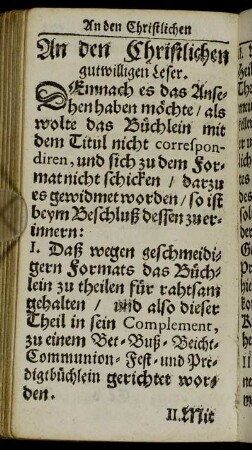 An den Christlichen
An den Christlichen
gutwilligen Leser.
DEmnach es das Anse-
hen haben möchte / als
wolte das Büchlein mit
dem Titul nicht correspon-
diren, und sich zu dem For-
mat nicht schicken / darzu
es gewidmet worden / so ist
beym Beschluß dessen zu er-
innern:
I. Daß wegen geschmeidi-
gern Formats das Büch-
lein zu theilen für rahtsam
gehalten / und also dieser
Theil in sein Complement,
zu einem Bet-Buß-Beicht-
Communion-Fest-und Pre-
digtbüchlein gerichtet wor-
den.
II. Mit